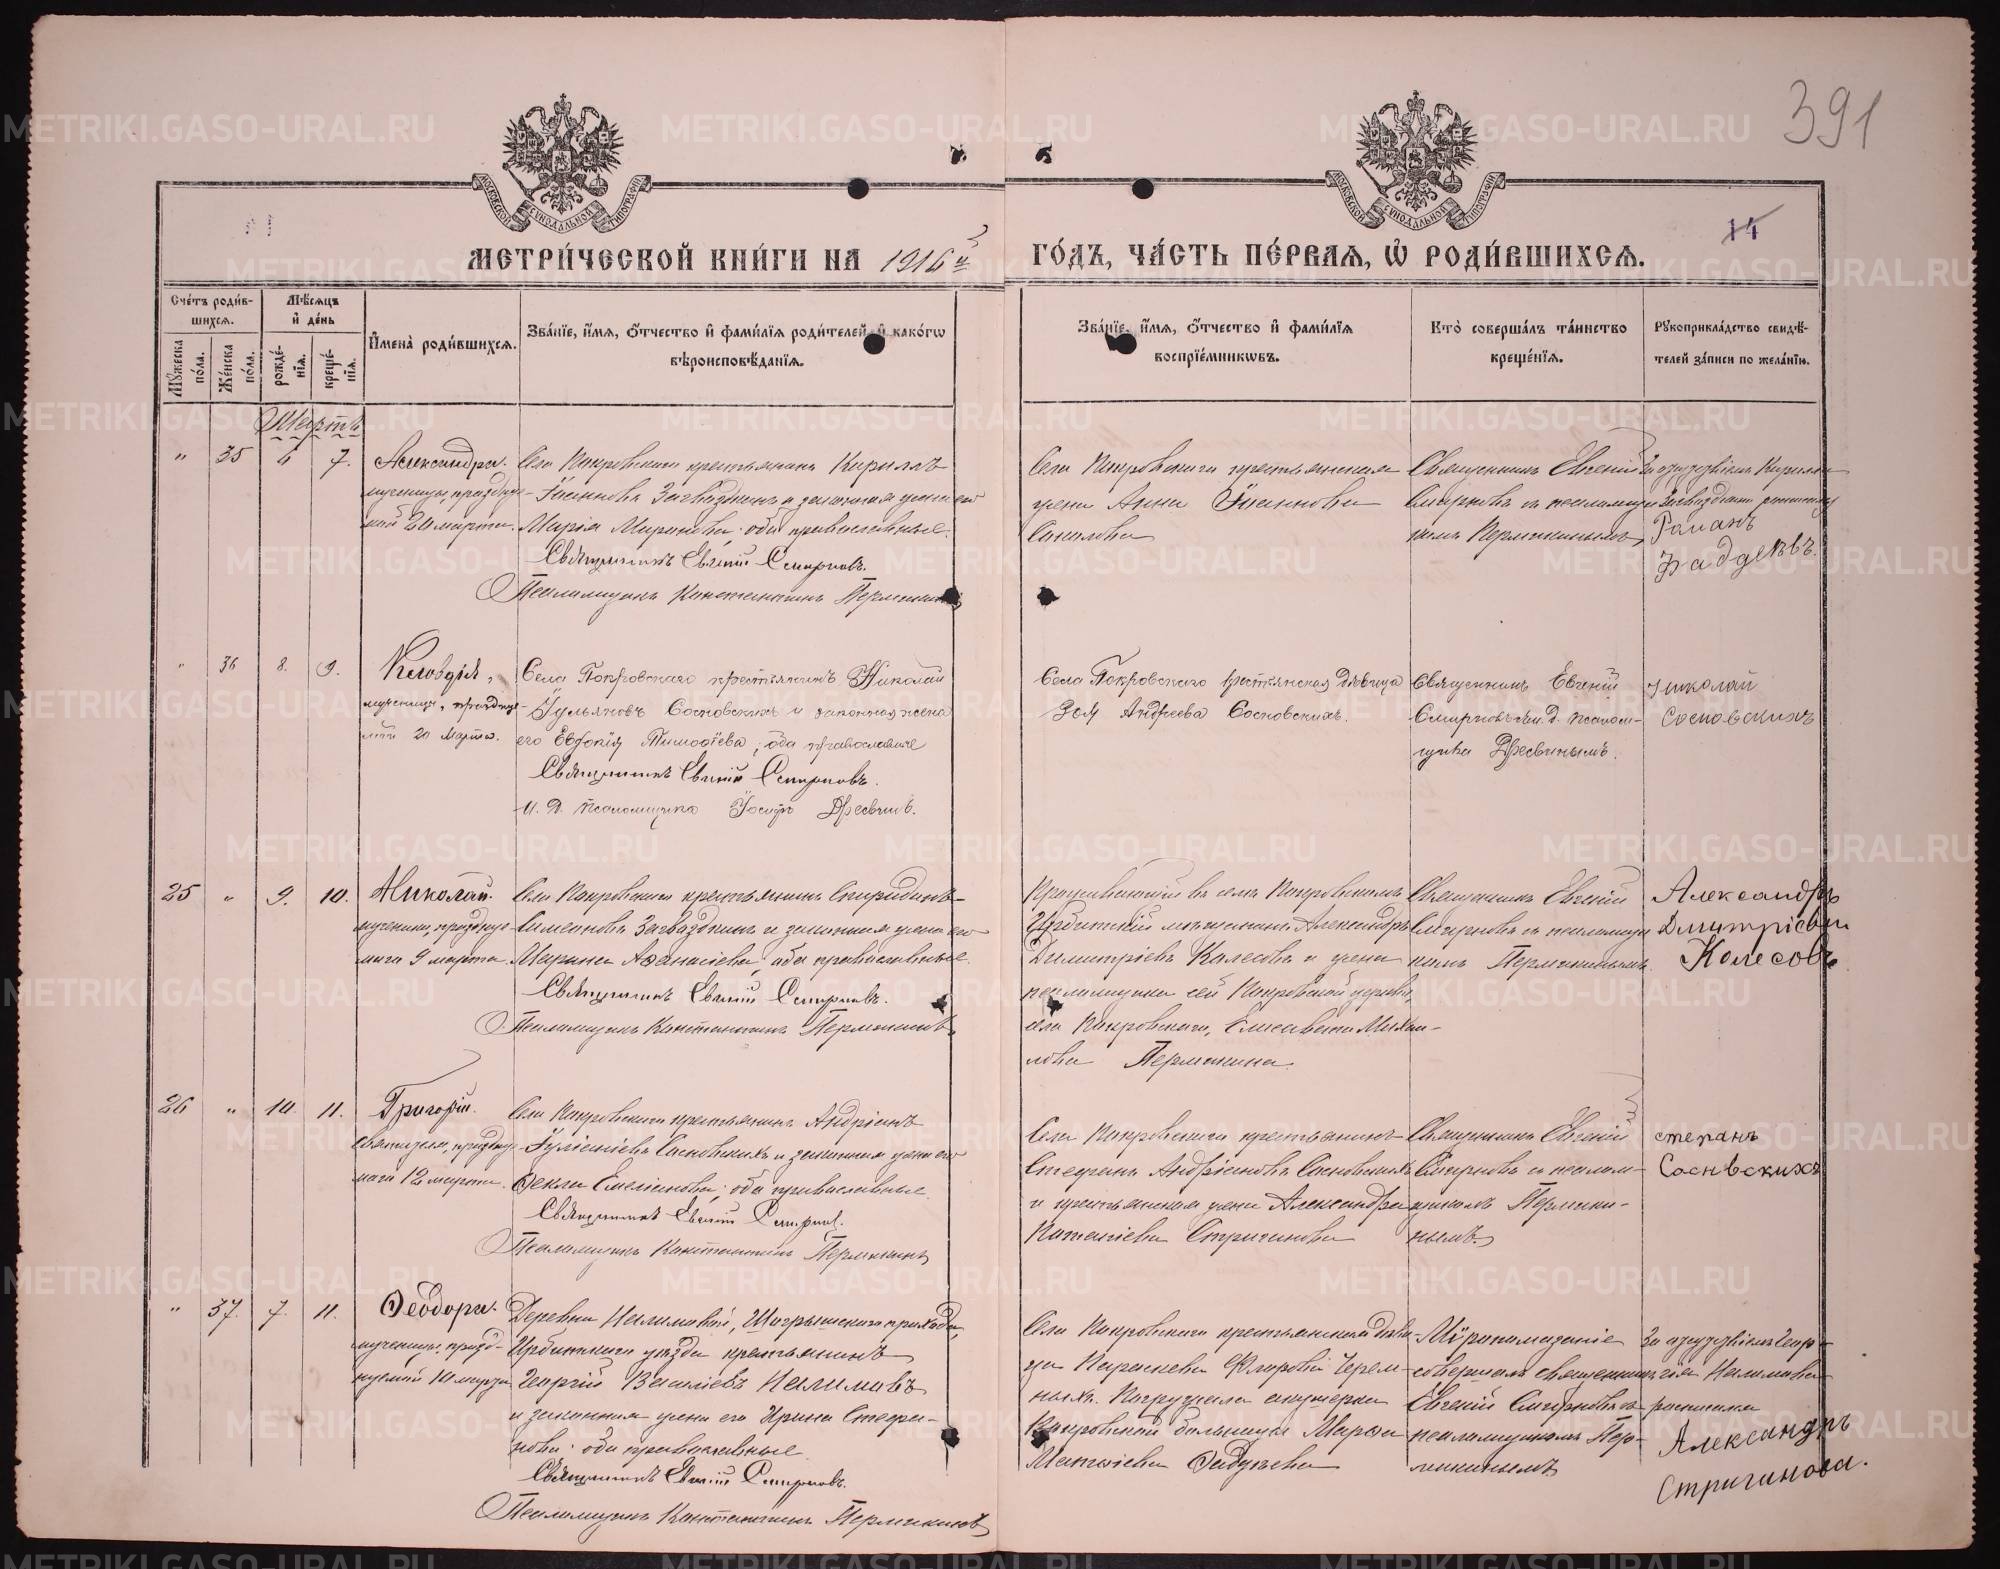 391
14
МОСКОВСКОЙ СѴНОДАЛЬНОЙ ТИПОГРАФІИ
МОСКОВСКОЙ СѴНОДАЛЬНОЙ ТИПОГРАФІИ
МЕТРИ́ЧЕСКОЙ КНИ́ГИ НА 1916й ГО́ДЪ, ЧА́СТЬ ПЕ́РВАѦ, Ѡ҆ РОДИ́ВШИХСѦ.
Сче́тъ роди́в-
шихсѧ.
Мѣ́сѧцъ
и҆ де́нь
Мꙋ́жеска по́ла.
Же́нска по́ла.
рожде́нїѧ.
креще́нїѧ.
И҆мена̀ роди́вшихсѧ.
Зва́нїе, и҆́мѧ, о҆́тчество и҆ фами́лїѧ роди́телей и҆ како́гѡ
вѣроисповѣ́данїѧ.
Зва́нїе, и҆́мѧ, о҆́тчество и҆ фами́лїѧ
воспрїе́мникѡвъ.
Кто̀ соверша́лъ та́инство
креще́нїѧ.
Рꙋкоприкла́дство свидѣ́-
телей за́писи по жела́нїю.
Мартъ
" 35 6 7.
Александра.
мученицы, праздну-
мой 20 марта.
Села Покровскаго крестьянинъ Кириллъ
Іоанновъ Загвоздкинъ и законная жена его
Марія Миронова; оба православные.
Священникъ Евгеній Смирновъ.
Псаломщикъ Константинъ Пермикинъ
Села Покровскаго крестьянская
жена Анна Іоаннова
Священникъ Евгеній
Смирновъ съ псаломщи-
комъ Пермикинымъ
Романъ
" 36 8. 9.
Клавдія,
мученицы, праздну-
мой 20 марта.
Села Покровскаго крестьянинъ Николай
Іульяновъ Сосновскихъ и законная жена
его Евдокія Тимофѣева; оба православные
Священникъ Евгеній Смирновъ.
И. д. псаломщика Іосифъ Дресвинъ.
Села Покровскаго крестьянская дѣвица
Зоя Андреева Сосновскихъ.
Священникъ Евгеній
Смирновъ съ и. д. псалом-
щика Дресвинымъ.
Николай
Сосновскихъ
25 " 9. 10.
Николай.
мученика, праздну-
маго 9 марта.
Села Покровскаго крестьянинъ Спиридонъ
Симеоновъ Загвоздкинъ и законная жена его
Марина Аѳанасіева; оба православные.
Священникъ Евгеній Смирновъ.
Псаломщикъ Константинъ Пермикинъ
Проживающій въ селѣ Покровскомъ
Ирбитскій мѣщанинъ Александръ
Димитріевъ Колесовъ и жена
псаломщика сей Покровской церкви,
села Покровскаго, Елисавета Михаи-
лова Пермикина.
Священникъ Евгеній
Смирновъ съ псаломщи-
комъ Пермикинымъ.
Александръ
Дмитріевич
Колесовъ
26 " 10. 11.
Григорій.
святителя, праздну-
маго 12 марта.
Села Покровскаго крестьянинъ Андріанъ
Іуліаніевъ Сосновскихъ и законная жена его
Ѳекла Емеліанова; оба православные.
Священникъ Евгеній Смирнов.
Псаломщикъ Константинъ Пермикинъ
Села Покровскаго крестьянинъ
Стефанъ Андріановъ Сосновскихъ
и крестьянская жена Александра
Стриганова
Священникъ Евгеній
Смирновъ съ псалом-
щикомъ Пермики-
нымъ.
степанъ
Соснвскихъ
" 37. 7. 11.
Ѳеодора.
мученицы, празд-
нуемой 10 марта
Деревни Налимовой, Шогрышскаго прихода,
Ирбитскаго уѣзда крестьянинъ
Георгій Василіевъ Налимовъ
и законная жена его Ирина Стефа-
нова; оба православные.
Священникъ Евгеній Смирновъ.
Псаломщикъ Константинъ Пермикинъ
Села Покровскаго крестьянская дѣви-
ца Параскева Флорова Черем-
ныхъ. Погружала акушерка
Покровской больницы Марѳа
Матѳіева
Мѵропомазаніе
совершалъ священникъ
Евгеній Смирновъ съ
псаломщикомъ Пер-
микинымъ
Александръ
Стриганова.
METRIKI.GASO-URAL.RU